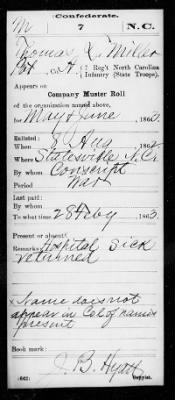 Confederate.
M 7 N.C.
Thomas C. Miller
Pvt, Co. A, 7 Reg't North Carolina
Infantry (State Troops).
Appears on
Company Muster Roll
of the organization named above,
for May & June, 1863.
Enlisted:
When Aug 186
Where Statesville N.C.
By whom Conscript
Period War
Last paid:
By whom
To what time 28 Feby, 1863.
Present or absent
Remarks: Hospital Sick
returned
Name does not
appear in Col. of names
present
Book mark:
J. B. Hyatt
(642) Copyist.